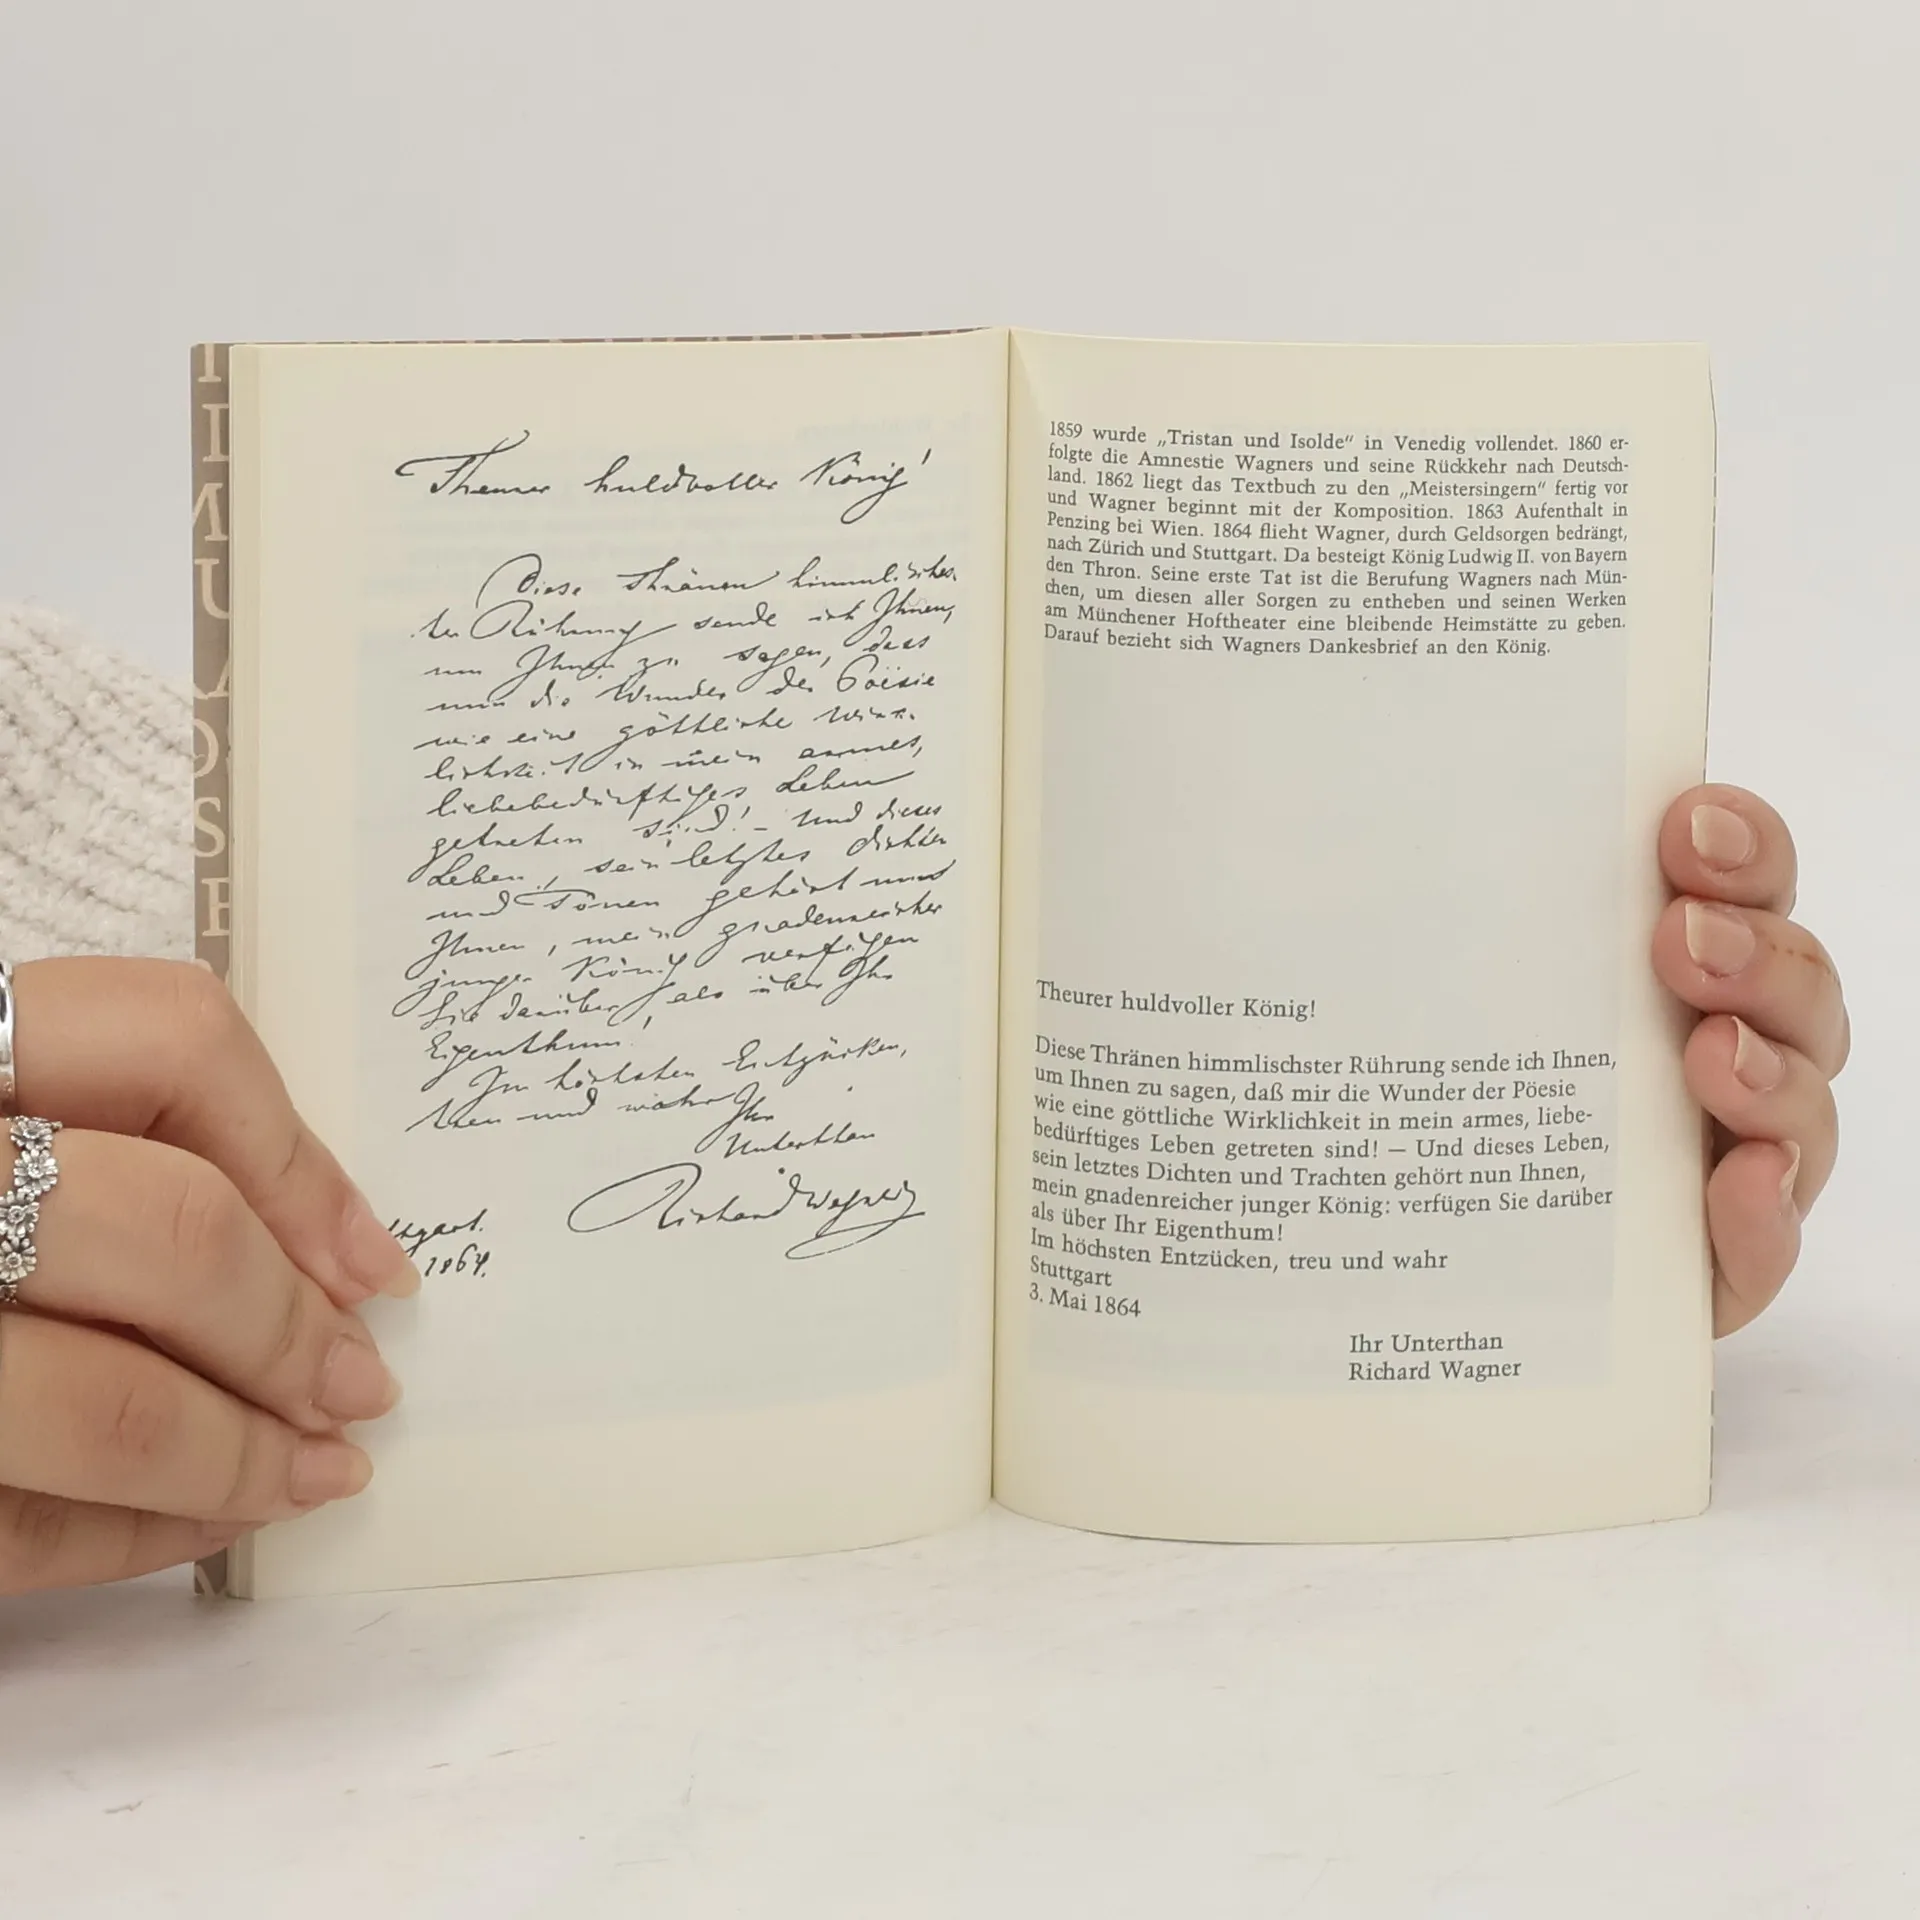 Theurer huldvoller König!
Diese Thränen himmlisches-
ter Rührung sende ich Ihnen,
um Ihnen zu sagen, dass
nun die Wunder der Poësie
wie eine göttliche Wirk-
lichkeit in mein armes,
liebebedürftiges Leben
getreten sind! – Und dieses
Leben, sein letztes Dichten
und Tönen gehört nun
Ihnen, mein gnadenreicher
junger König verfügen
Sie darüber, als über Ihr
Eigenthum!
Im höchsten Entzücken,
treu und wahr Ihr
Unterthan
Richard Wagner
ttgart.
1864.
1859 wurde „Tristan und Isolde“ in Venedig vollendet. 1860 er-
folgte die Amnestie Wagners und seine Rückkehr nach Deutsch-
land. 1862 liegt das Textbuch zu den „Meistersingern“ fertig vor
und Wagner beginnt mit der Komposition. 1863 Aufenthalt in
Penzing bei Wien. 1864 flieht Wagner, durch Geldsorgen bedrängt,
nach Zürich und Stuttgart. Da besteigt König Ludwig II. von Bayern
den Thron. Seine erste Tat ist die Berufung Wagners nach Mün-
chen, um diesen aller Sorgen zu entheben und seinen Werken
am Münchener Hoftheater eine bleibende Heimstätte zu geben.
Darauf bezieht sich Wagners Dankesbrief an den König.
Theurer huldvoller König!
Diese Thränen himmlischster Rührung sende ich Ihnen,
um Ihnen zu sagen, daß mir die Wunder der Pöesie
wie eine göttliche Wirklichkeit in mein armes, liebe-
bedürftiges Leben getreten sind! — Und dieses Leben,
sein letztes Dichten und Trachten gehört nun Ihnen,
mein gnadenreicher junger König: verfügen Sie darüber
als über Ihr Eigenthum!
Im höchsten Entzücken, treu und wahr
Stuttgart
3. Mai 1864
Ihr Unterthan
Richard Wagner